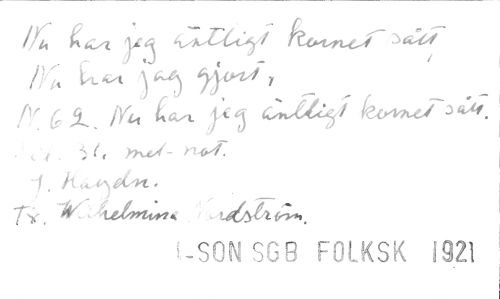 Nu har jag äntligt kornet sått,
Nu har jag gjort,
N. 62. Nu har jag äntligt kornet sått.
31. met-not.
J. Haydn.
Tx. Wilhelmina Nordström.
L-SON SGB FOLKSK 1921